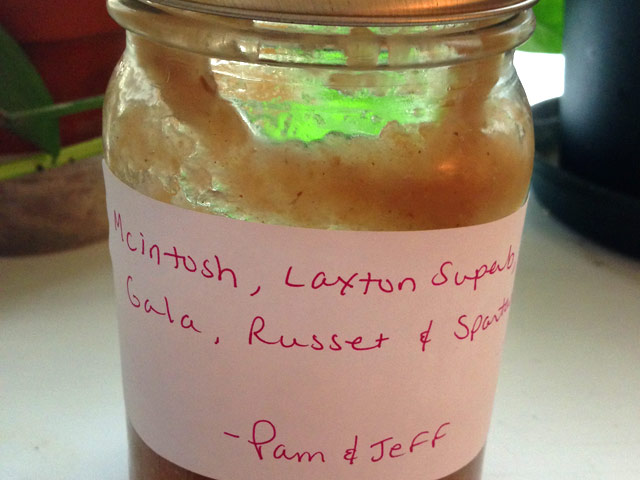 Mcintosh, Laxton Superb,
Gala, Russet & Spartan
- Pam & Jeff